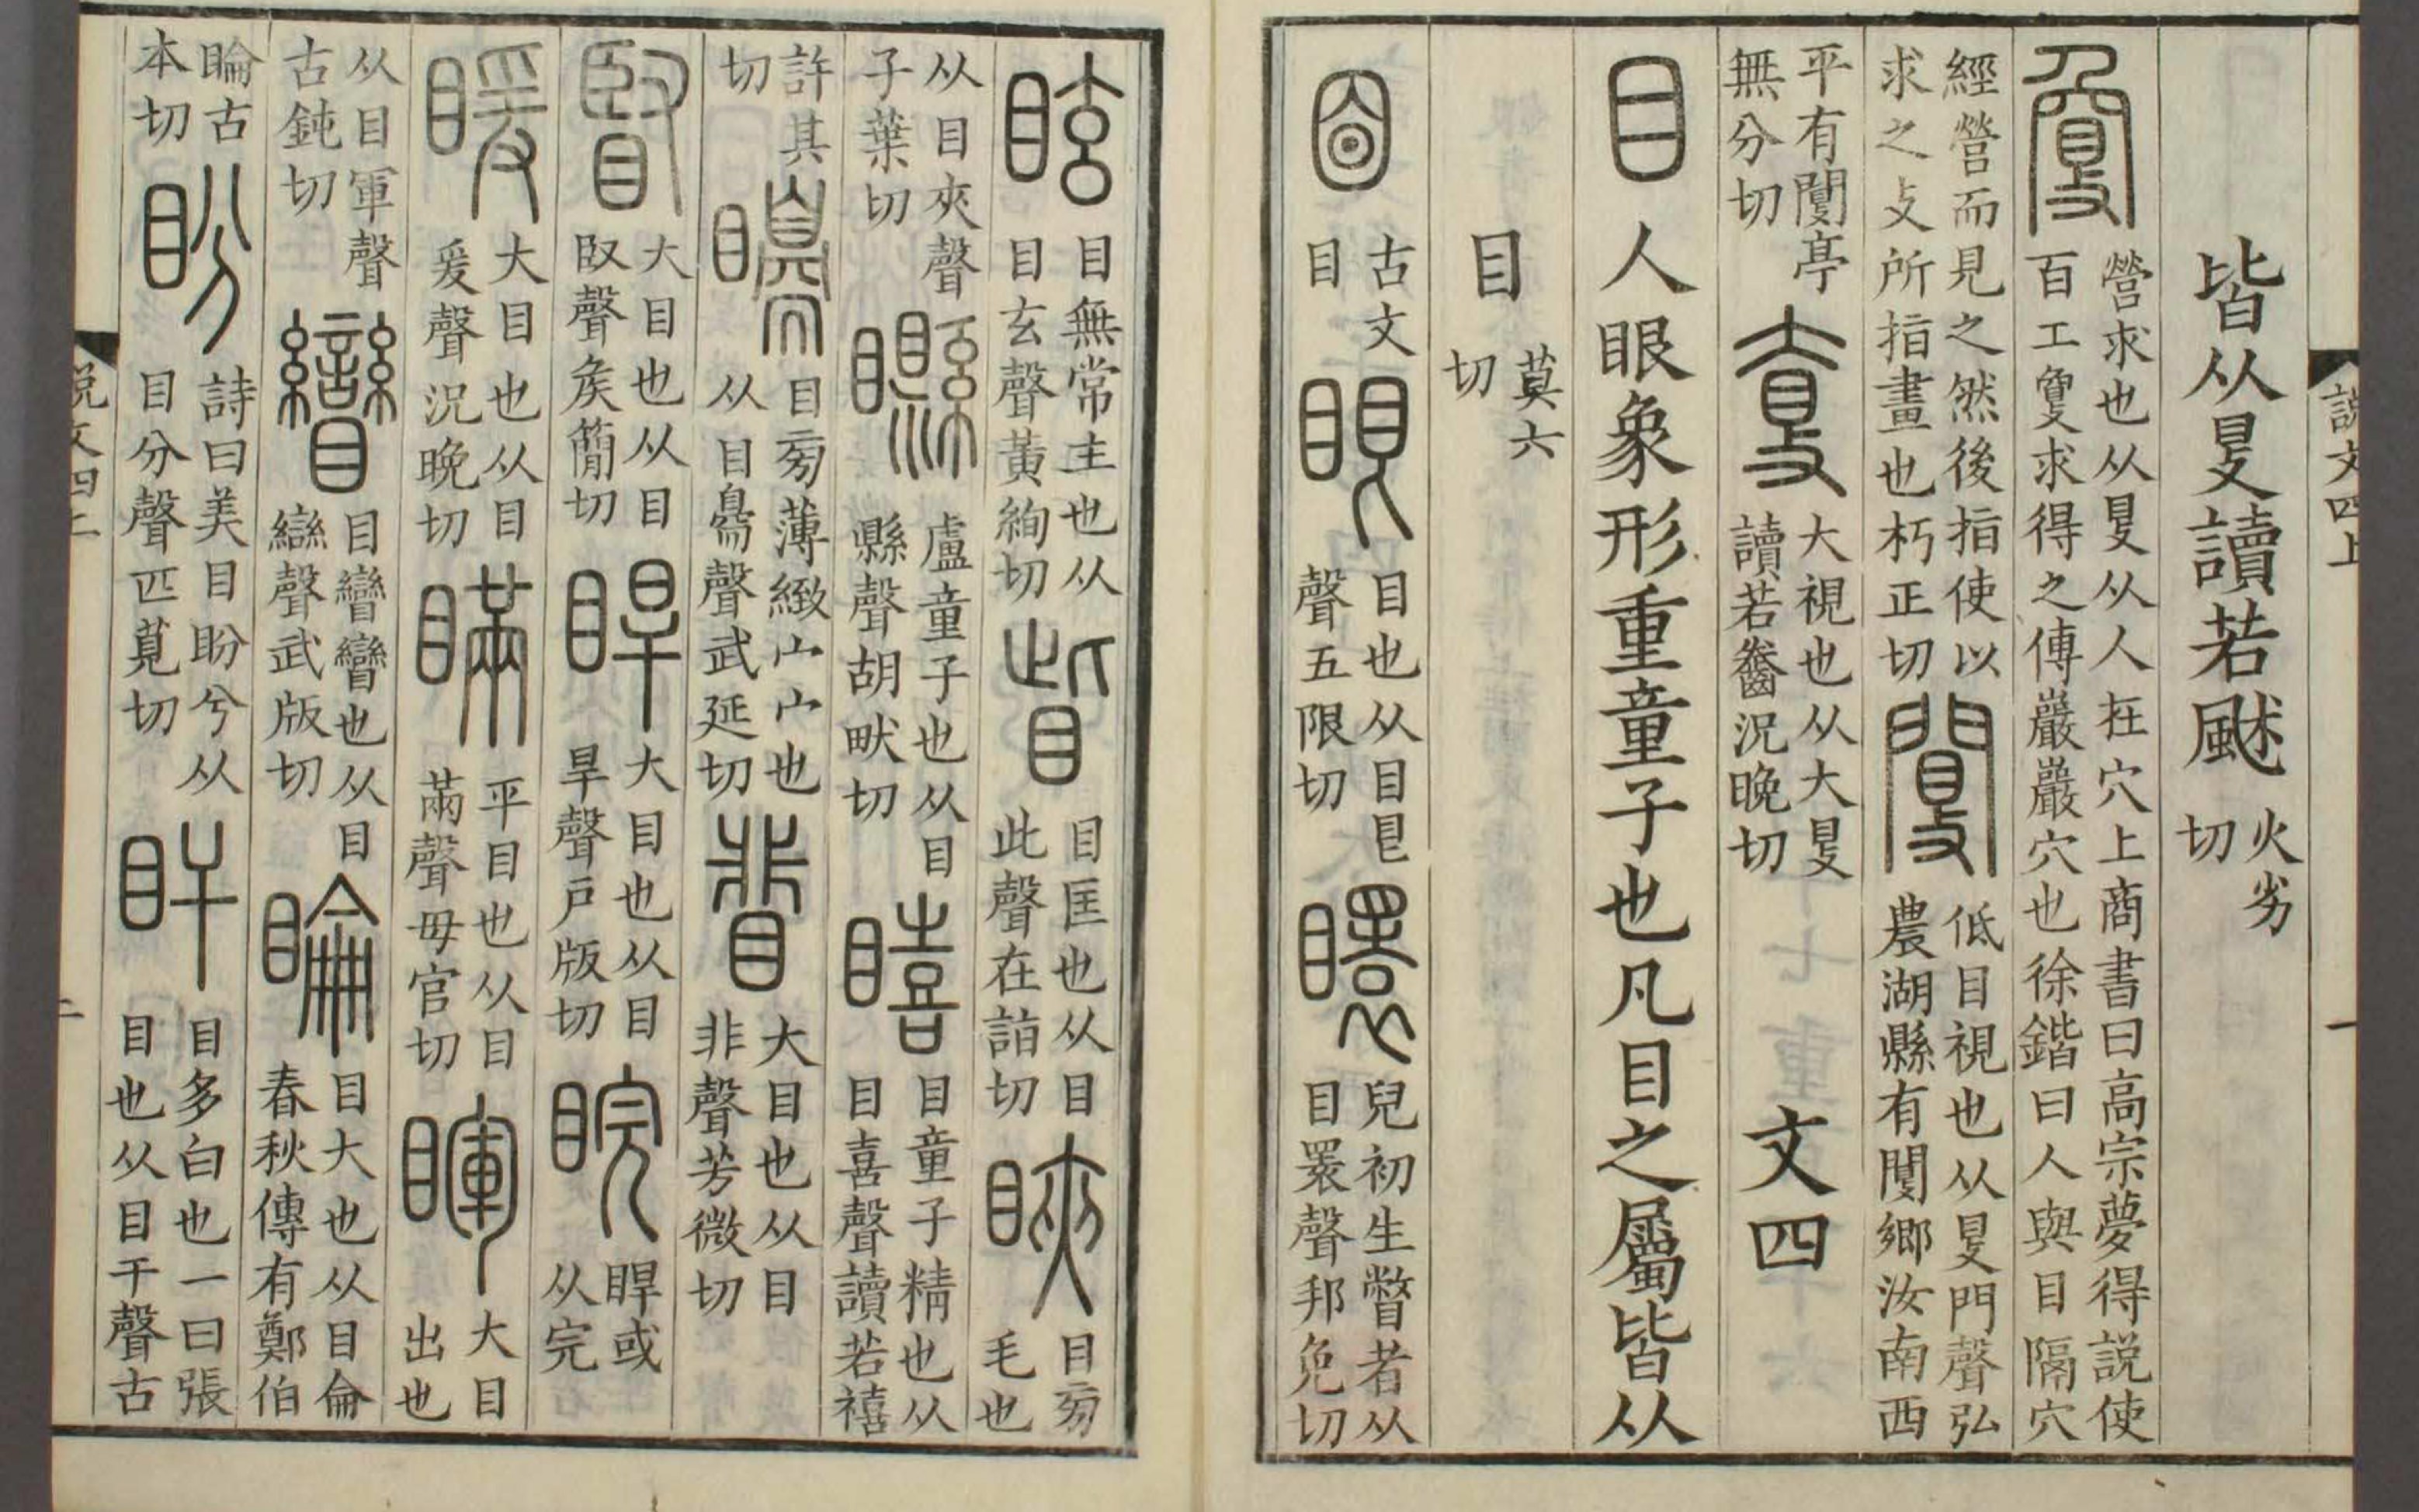 説文四上
一
皆从𡕥讀若颰火劣切
夐營求也从𡕥从人在穴上商書曰高宗夢得說使百工夐求得之傅巖巖穴也徐鍇曰人與目隔穴
經營而見之然後指使以求之攴所指畫也朽正切閺低目視也从𡕥門聲弘農湖縣有閺鄉汝南西
平有閺亭無分切𡘲大視也从大𡕥讀若𪗙況晚切文四
目人眼象形重童子也凡目之屬皆从
目莫六切
𡇡古文目眼目也从目㫐聲五限切瞏兒初生瞥者从目瞏聲邦免切
眩目無常主也从目玄聲黃絢切眥目匡也从目此聲在詣切䀹目㫄毛也
从目夾聲子葉切𥌭盧童子也从目縣聲胡畎切瞦目童子精也从目喜聲讀若禧
許其切矏目㫄薄緻宀宀也从目臱聲武延切䀟大目也从目非聲芳微切
䁂大目也从目臤聲矦簡切睅大目也从目旱聲戶版切睆睅或从完
暖大目也从目爰聲況晚切䀽平目也从目㒼聲母官切睴大目出也
从目軍聲古鈍切矕目矕矕也从目䜌聲武版切睔目大也从目侖春秋傳有鄭伯
睔古本切盼詩曰美目盼兮从目分聲匹莧切盰目多白也一曰張目也从目干聲古
説文四上
二